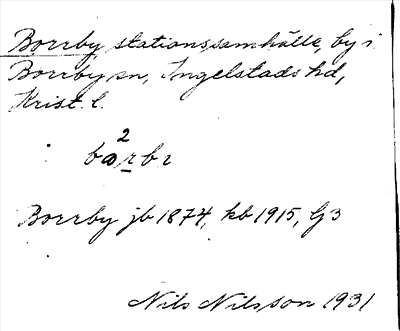 Borrby, stationssamhälle, by i
Borrby sn, Ingelstads hd,
Krist. l.
2
barbɩ
Borrby jb 1874, kb 1915, G3
Nils Nilsson 1931